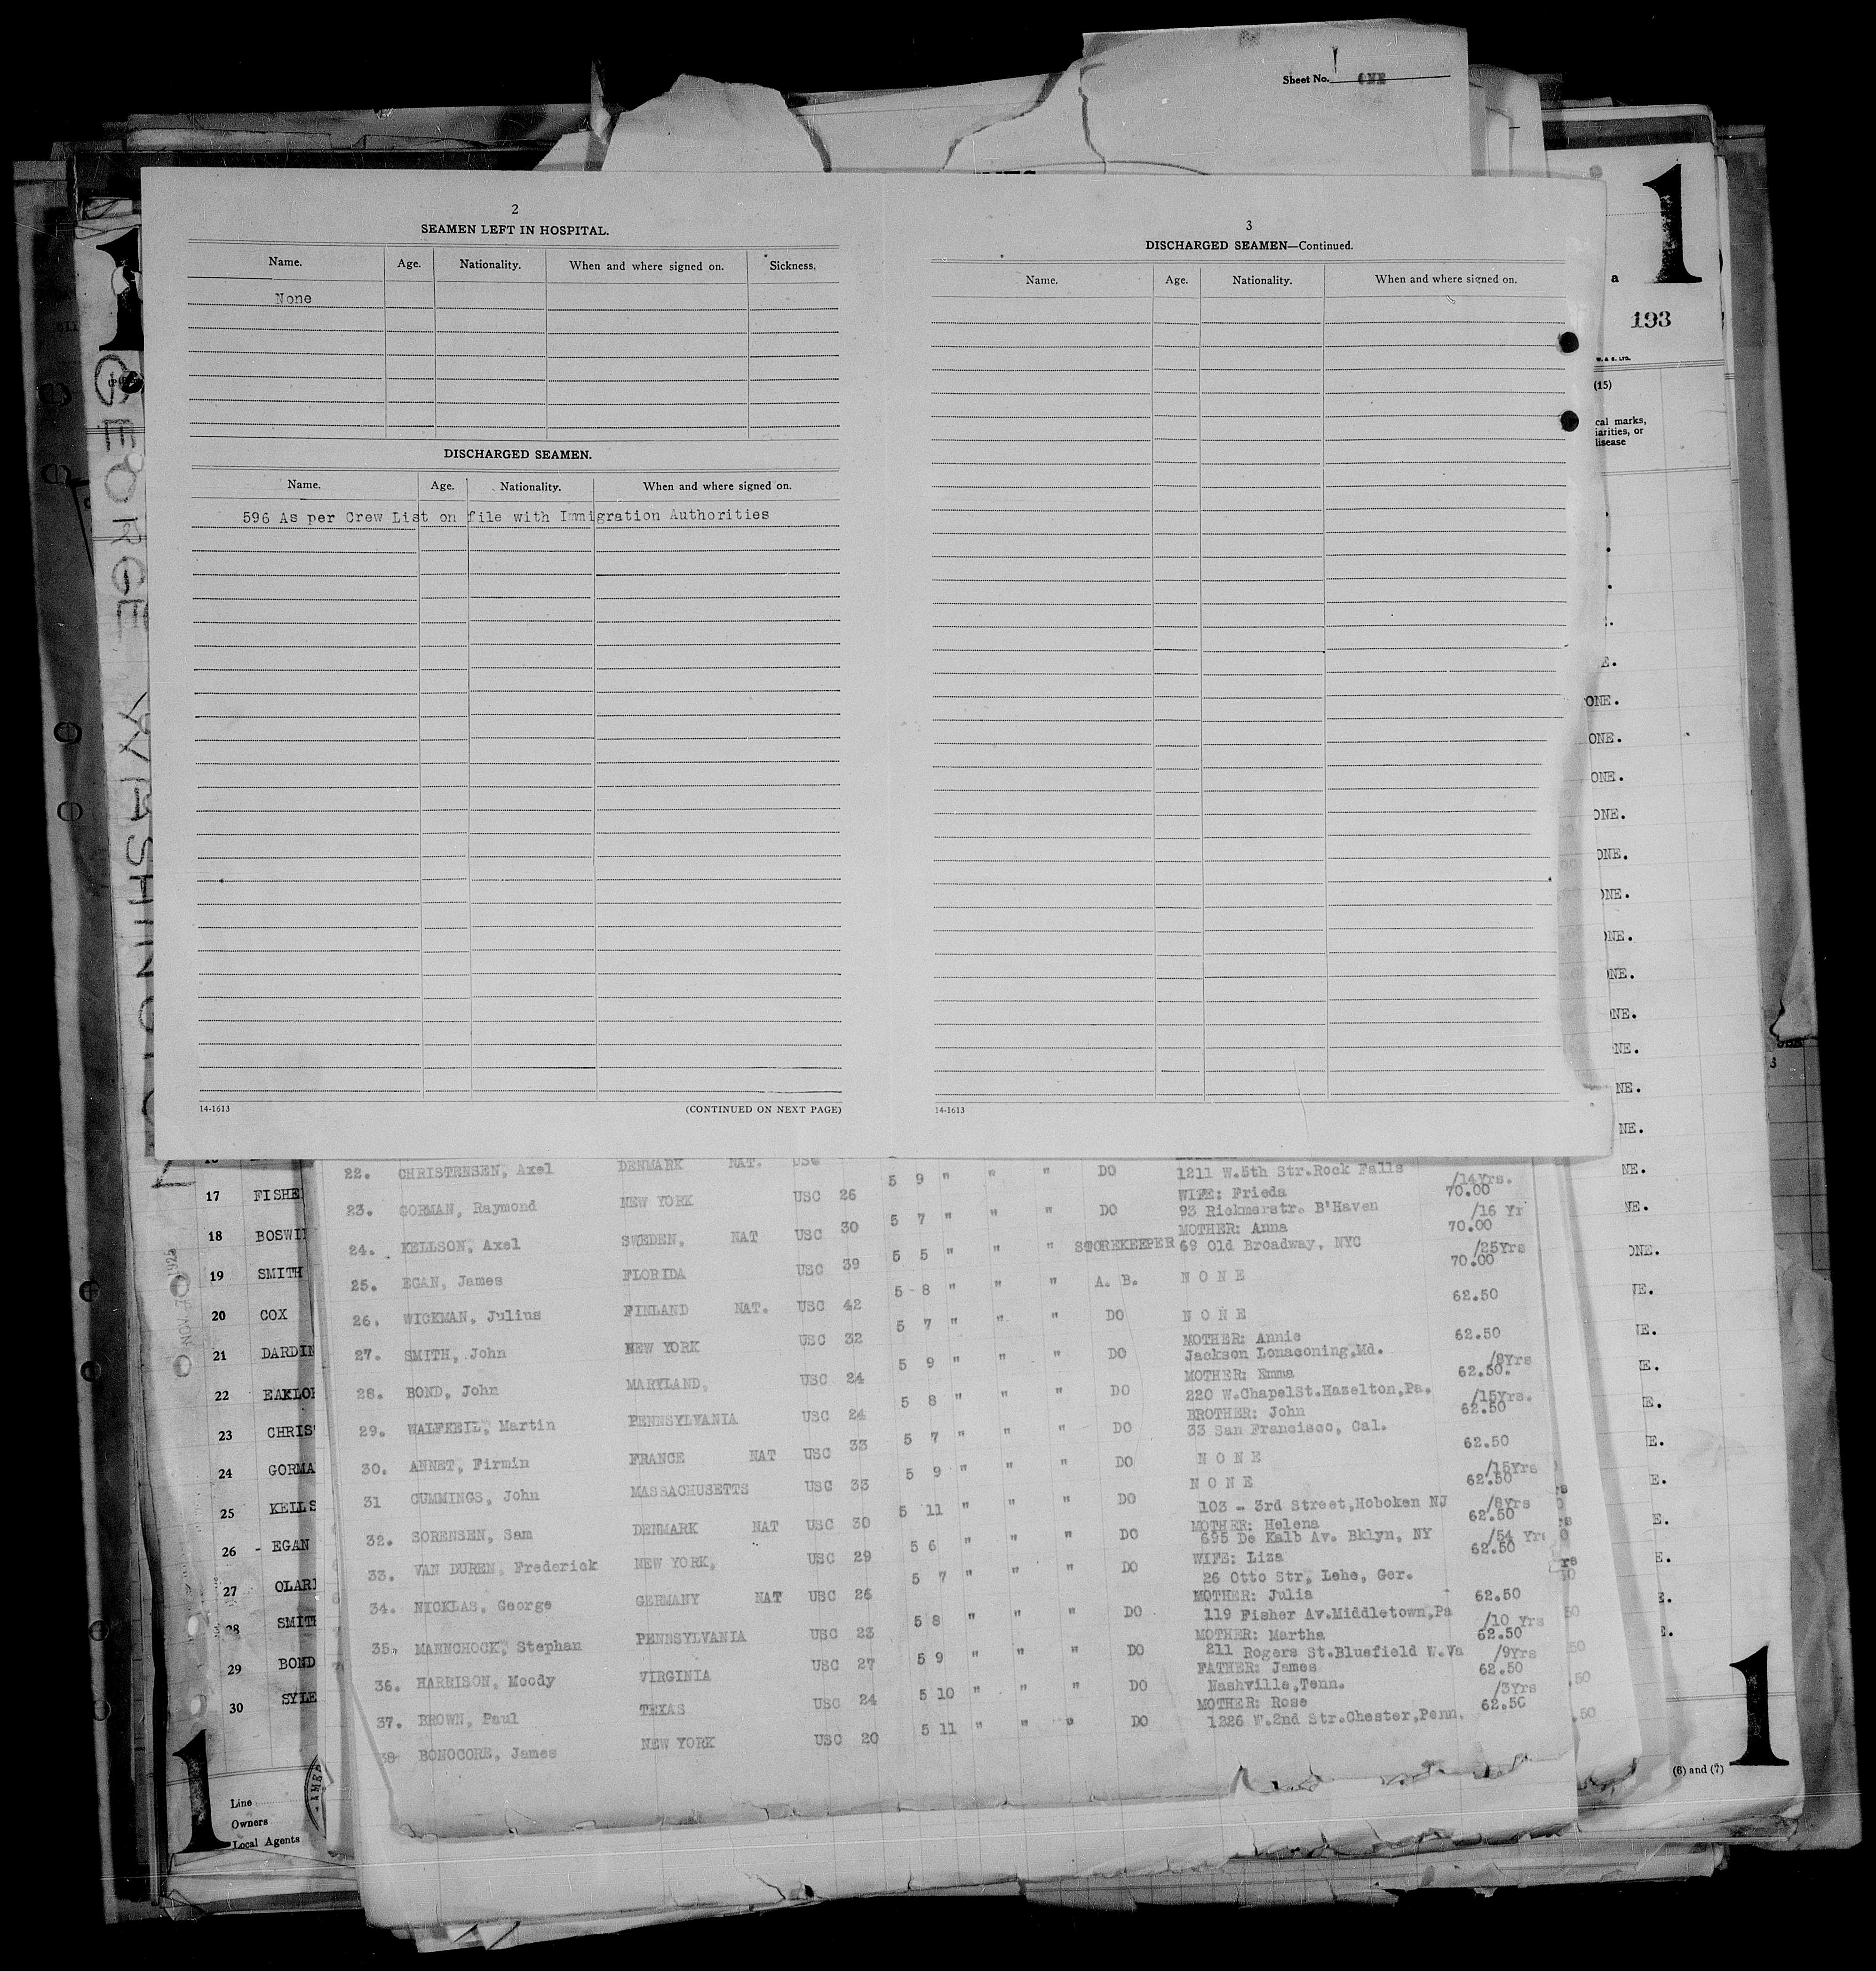 Sheet No. ONE
2
SEAMEN LEFT IN HOSPITAL.
Name. Age. Nationality. When and where signed on. Sickness.
None
DISCHARGED SEAMEN.
Name. Age. Nationality. When and where signed on.
596 As per Crew List on file with Immigration Authorities
14-1613 (CONTINUED ON NEXT PAGE)
3
DISCHARGED SEAMEN—Continued.
Name. Age. Nationality. When and where signed on.
14-1613
1
1
a
193
W. & S. LTD.
(15)
cal marks,
iarities, or
disease
GEORGE WASHINGTON
ONE.
ONE.
ONE.
ONE.
ONE.
ONE.
ONE.
ONE.
NE.
NE.
NE.
NE.
NE.
NE.
ONE.
NE.
NE.
E.
E.
E.
E.
E.
E.
E.
E.
17 FISHE
18 BOSWI
19 SMITH
20 COX
21 DARDIN
22 EAKLOR
23 CHRIS
24 GORMA
25 KELLS
26 - EGAN
27 OLARI
28 SMITH
29 BOND
30 SYLE
22. CHRISTENSEN, Axel DENMARK NAT. USC 5 9 " " " DO 1211 W.5th Str.Rock Falls /14Yrs.
WIFE: Frieda 70.00
23. GORMAN, Raymond NEW YORK USC 26 5 7 " " " DO 93 Rickmerstr. B'Haven /16 Yr
MOTHER: Anna 70.00
24. KELLSON, Axel SWEDEN, NAT USC 30 5 5 " " " STOREKEEPER 69 Old Broadway, NYC /25Yrs
70.00
25. EGAN, James FLORIDA USC 39 5-8 " " " A. B. N O N E
62.50
26. WICKMAN, Julius FINLAND NAT. USC 42 5 7 " " " DO N O N E
MOTHER: Annie 62.50
27. SMITH, John NEW YORK USC 32 5 9 " " " DO Jackson Lonaconing,Md. /8Yrs
MOTHER: Emma 62.50.
28. BOND, John MARYLAND, USC 24 5 8 " " " DO 220 W.ChapelSt.Hazelton,Pa. /15Yrs.
BROTHER: John 62.50
29. WALFKEIL, Martin PENNSYLVANIA USC 24 5 7 " " " DO 33 San Francisco, Cal.
62.50
30. ANNET, Firmin FRANCE NAT USC 33 5 9 " " " DO N O N E /15Yrs
N O N E 62.50
31 CUMMINGS, John MASSACHUSETTS USC 33 5 11 " " " DO 103 - 3rd Street,Hoboken NJ /8Yrs
MOTHER: Helena 62.50
32. SORENSEN, Sam DENMARK NAT USC 30 5 6 " " " DO 695 De Kalb Av. Bklyn, NY /54 Yrs
WIFE: Liza 62.50
33. VAN DUREN, Frederick NEW YORK, USC 29 5 7 " " " DO 26 Otto Str, Lehe, Ger.
MOTHER: Julia 62.50
34. NICKLAS, George GERMANY NAT USC 26 5 8 " " " DO 119 Fisher Av.Middletown,Pa /10 Yrs
MOTHER: Martha 62.50
35. MANNCHOCK, Stephan PENNSYLVANIA USC 23 5 9 " " " DO 211 Rogers St.Bluefield W.Va /9Yrs
FATHER: James 62.50
36. HARRISON, Moody VIRGINIA USC 27 5 10 " " " DO Nashville,Tenn. /3Yrs
MOTHER: Rose 62.50
37. BROWN, Paul TEXAS USC 24 5 11 " " " DO 1226 W.2nd Str.Chester,Penn.
38 BONOCORE, James NEW YORK USC 20
Line
Owners
Local Agents
1
(6) and (7)
1